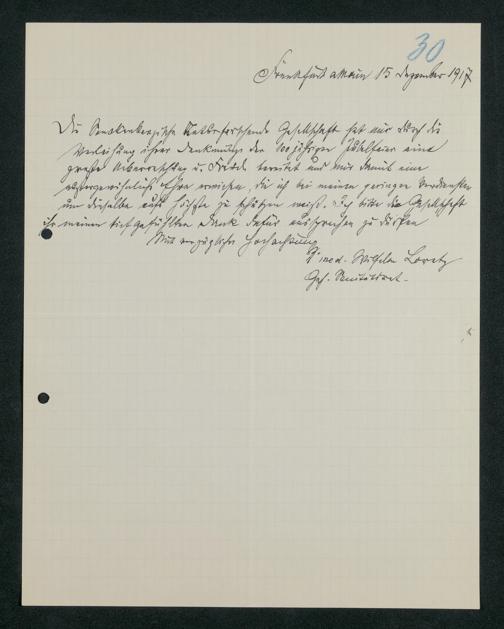 30
Frankfurt a Main 15 Dezember 1917
Die Senckenbergische Naturforschende Gesellschaft hat mir durch die
Verleihung ihrer Denkmünze der 100 jährigen Jubelfeier eine
große Ueberraschung u. Freude bereitet und mir damit eine
außergewöhnliche Ehre erwiesen, die ich bei meinen geringen Verdiensten
um dieselbe aufs höchste zu schätzen weiß. Ich bitte die Gesellschaft
ihr meinen tiefgefühlten Dank dafür aussprechen zu dürfen
Mit vorzüglicher Hochachtung
Dr med. Wilhelm Loretz
Geh. Sanitätsrat.